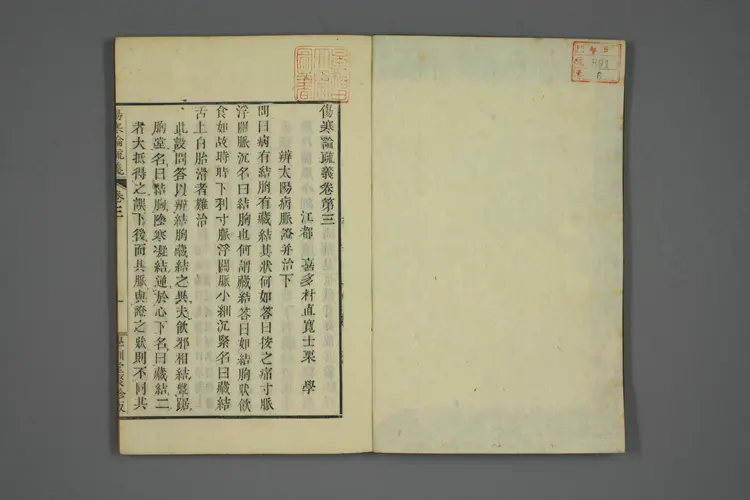 傷寒論疏義卷第三
江都 喜多村直寬士栗 學
辨太陽病脈證并治下
問曰病有結胸有藏結其狀何如答曰按之痛寸脈
浮關脈沉名曰結胸也何謂藏結答曰如結胸狀飲
食如故時時下利寸脈浮關脈小細沉緊名曰藏結
舌上白胎滑者難治
此設問答以辨結胸藏結之異夫飲邪相結盤踞
胸堂名曰結胸陰寒凝結逆於心下名曰藏結二
者大抵得之誤下後而其脈與證之狀則不同其
傷寒論疏義
卷三
一
891
6